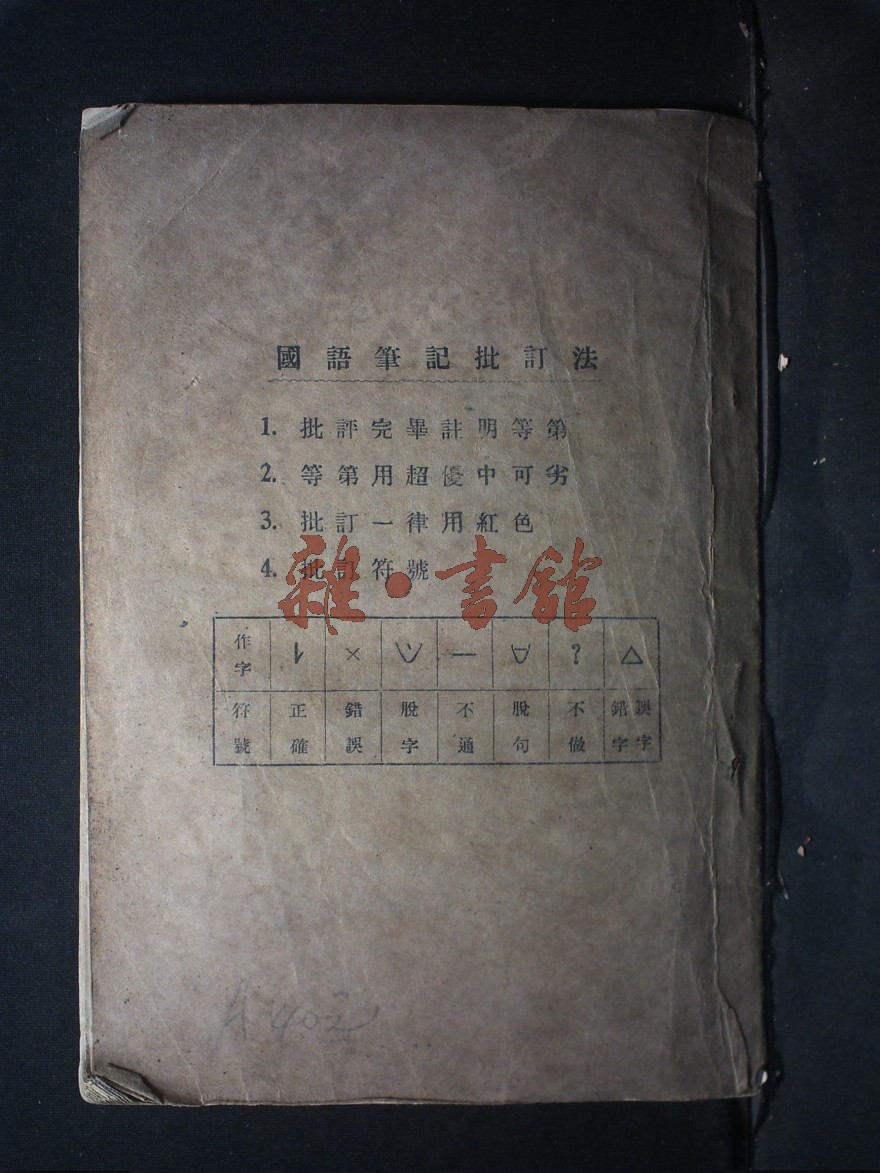 國語筆記批訂法
1. 批評完畢註明等第
2. 等第用超優中可劣
3. 批訂一律用紅色
4. 批訂符號
雜·書館
作字 × — ? △
符號 正確 錯誤 脫字 不通 脫句 不做 錯字 誤字
A 402